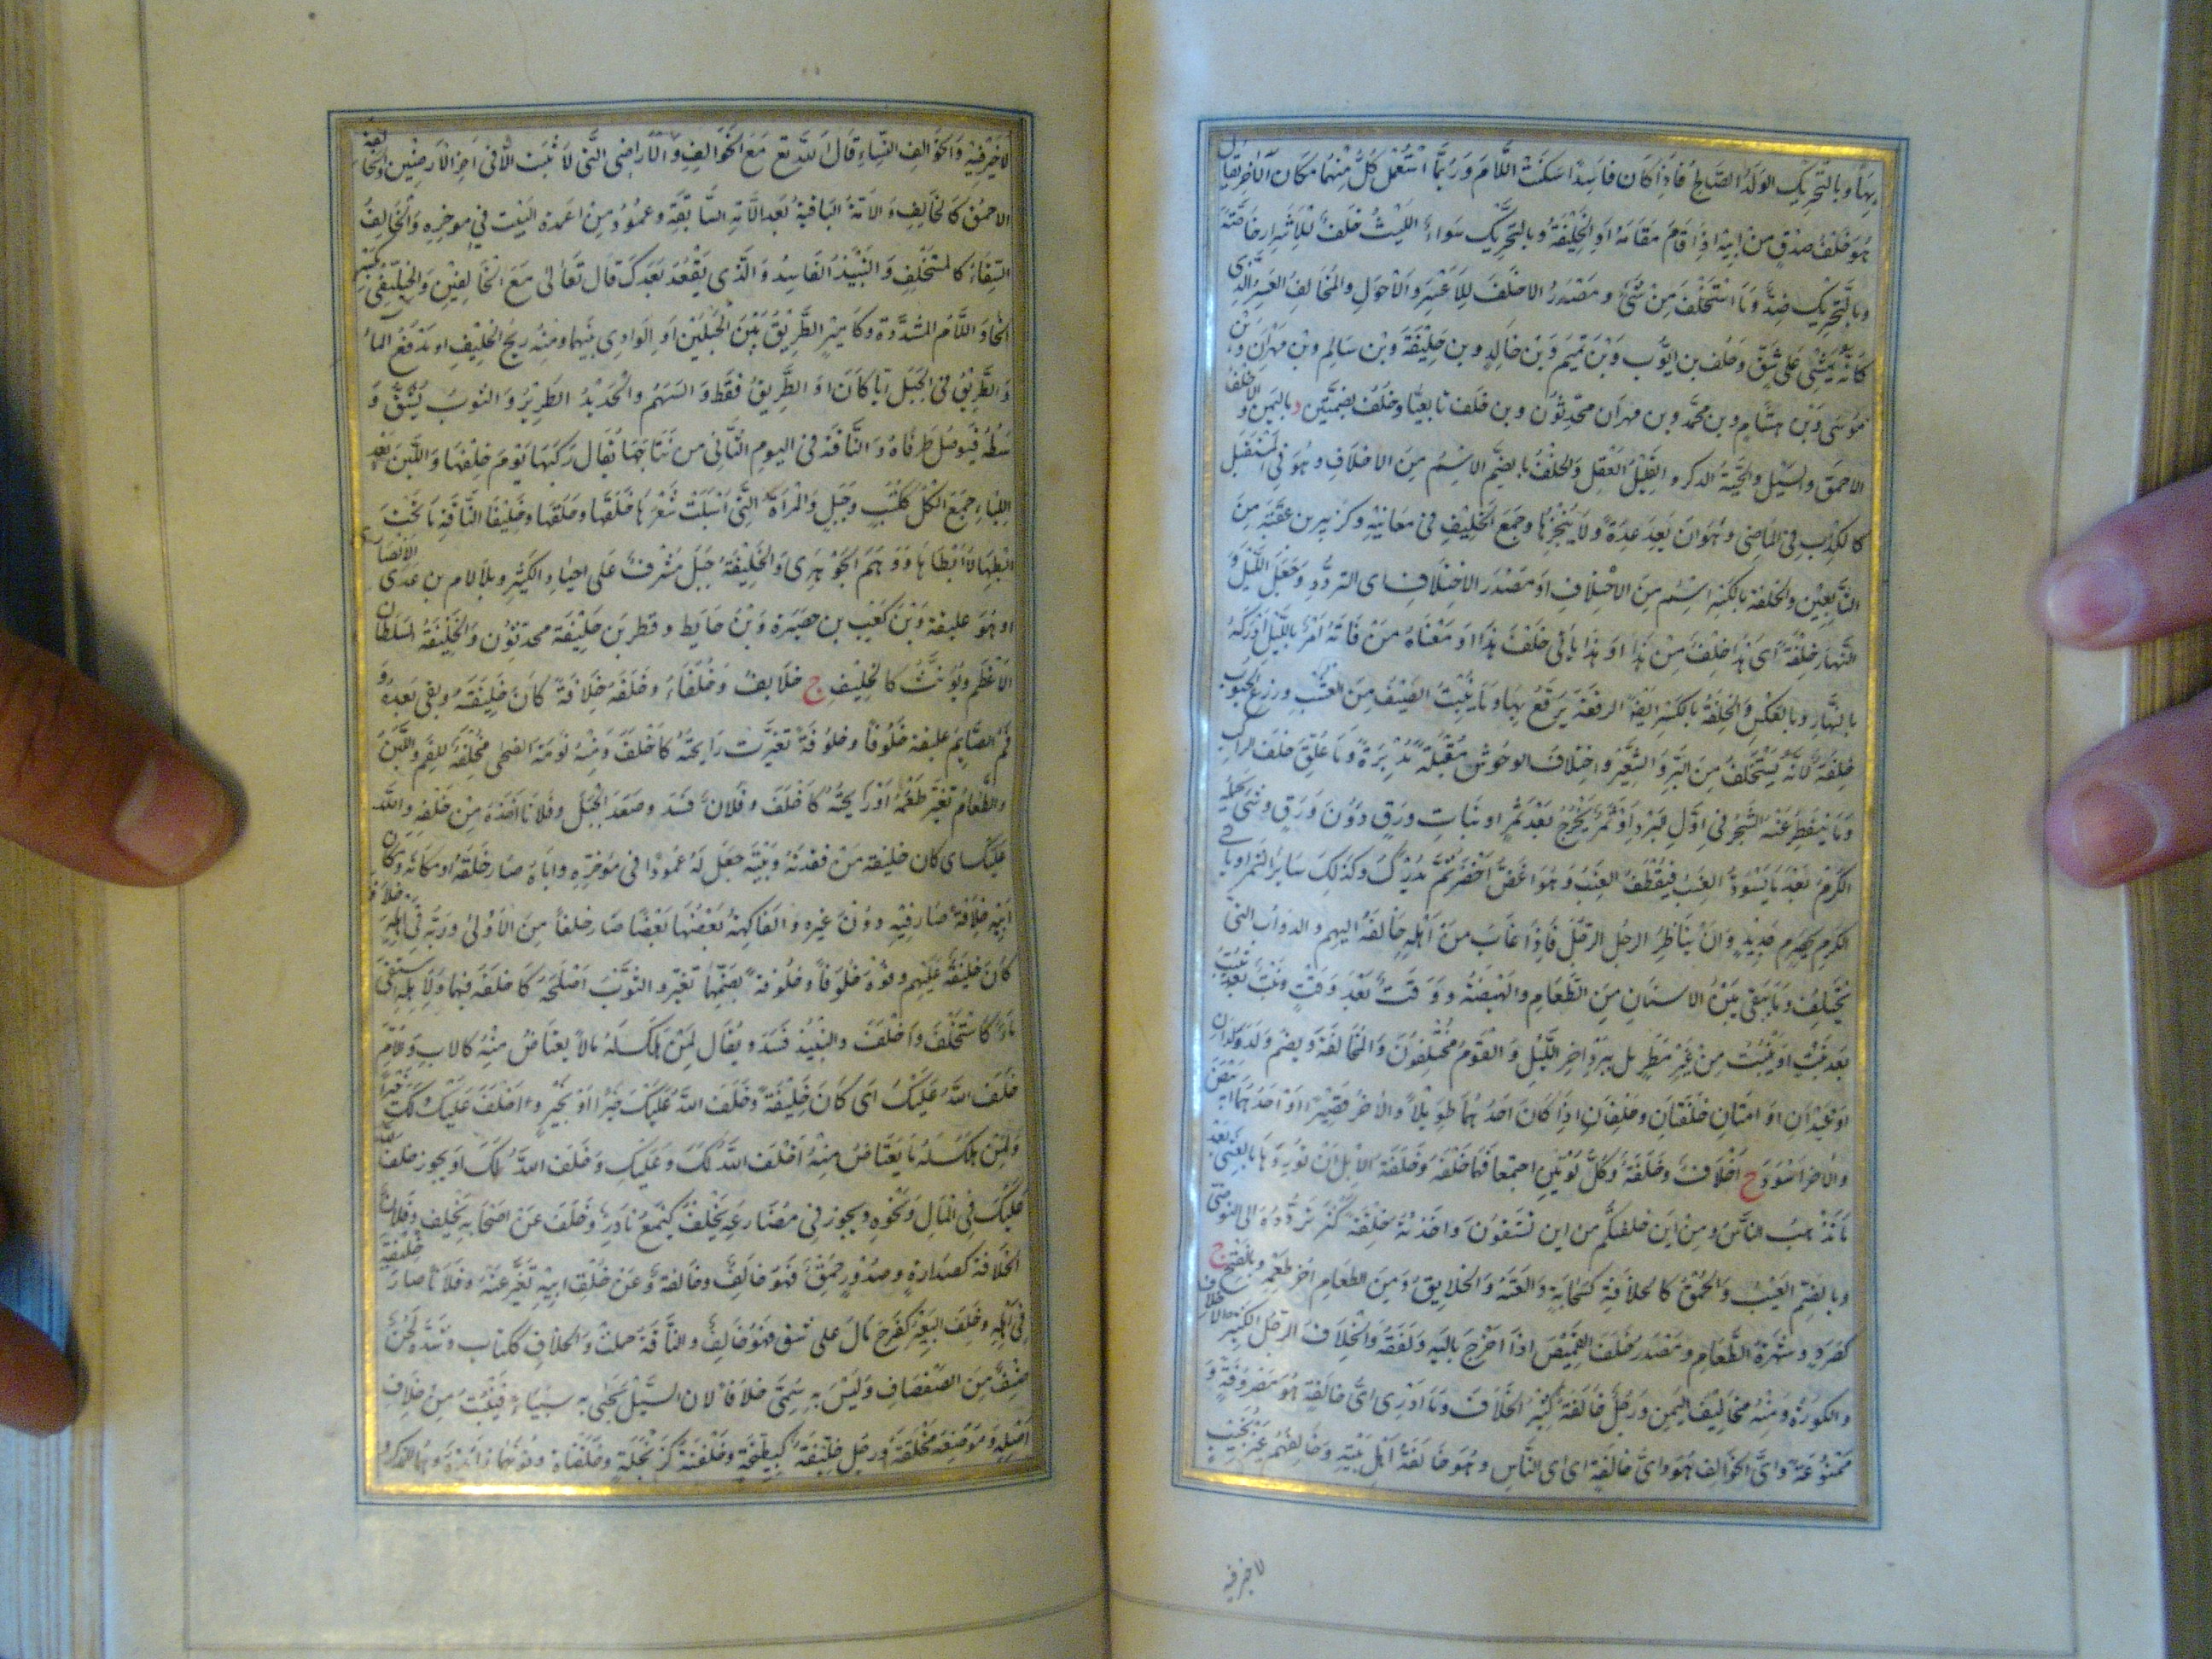 بها وبالتحريك الولد الصالح فاذا كان فاسدا اسكنت اللام وربما استعمل كل منهما مكان الآخر يقال
هو خلف صدق من ابيه اذا قام مقامه او الخليفة وبالتحريك سواء الليث خلف للاشرار خاصة
وبالتحريك ضده وما استخلف من شئ ومصدر الاخلف للاعسر والاحول والمخالف العسر الذى
كانه يمشى على شق وخلف بن ايوب وبن تميم وبن خالد وبن خليفة وبن سالم وبن مهران وبن
موسى وبن هشام وبن محمد وبن مهران محدثون وبن خلف تابعيا وخلف بضمتين د باليمن والاخلف
الاحمق والسيل والحية الذكر والقليل العقل والخلف بالضم الاسم من الاخلاف وهو فى المستقبل
كالكذب فى الماضى وهو ان يعد عدة ولا ينجزها وجمع الخليف فى معانيه وكزبير بن عقبة من
التابعين والخلفة بالكسر اسم من الاختلاف او مصدر الاختلاف اى التردد وجعل الليل و
النهار خلفة اى هذا خلف من هذا او هذا يأتى خلف هذا او معناه من فاته امر بالليل ادركه
بالنهار وبالعكس والخلفة بالكسر ايضا الرقعة يرقع بها وما ينبت الصيف من العشب وزرع الحبوب
خلفة لانه يستخلف من البر والشعير واختلاف الوحوش مقبلة مدبرة وما علق خلف الراكب
وما يتفطر عنه الشجر فى اول البرد او ثمر يخرج بعد ثمر او نبات ورق دون ورق وشئ يحمله
الكرم بعد ما يسود العنب فيقطف العنب وهو غض اخضر ثم يدرك وكذلك سائر الثمر او يأتى
الكرم بحصرم جديد وان يناظر الرجل الرجل فاذا غاب من اهله خالفه اليهم والدواب التى
تختلف وما يبقى بين الاسنان من الطعام والهيضة ووقت بعد وقت ونبت ينبت بعد
بعد نبت او ينبت من غير مطر بل ببرد آخر الليل والقوم مختلفون والمخالفة ويضم وله ولدان
او عبدان او امتان خلفتان وخلفان اذا كان احدهما طويلا والآخر قصيرا او احدهما ابيض
والآخر اسود ج اخلاف وخلفة وكل لونين اجتمعا فهما خلفة وخلفة الابل ان توردها بالعشى بعد
ما تذهب الناس ومن اين خلفتكم من اين تستقون واخذته خلفة كثر تردده الى التوضى
وبالضم العيب والحمق كالخلافة كسحابة والعته والخلاف ومن الطعام آخر طعمه وبالفتح ج
وشهوة الطعام ومصدر خلف القميص اذا اخرج باليه ولفقه والخلاف الرجل الكثير الاخلاف
والكورة ومنه مخاليف اليمن ورجل خالفة كثير الخلاف وما ادرى اى خالفة هو مصروفة و
ممنوعة واى الخوالف هو واى خالفة اى اى الناس وهو خالفة اهل بيته وخالفهم غير نجيب
لا خير فيه
لا خير فيه والخوالف النساء قال الله تع مع الخوالف والاراضى التى لا تنبت الا فى آخر الارضين والخالفة
الاحمق كالخالف والامة الباقية بعد الامة السابقة وعمود من اعمدة البيت فى مؤخره والخالف
السقاء كالمستخلف والنبيذ الفاسد والذى يقعد بعدك قال تعالى مع الخالفين والخليفى بكسر
الخاء واللام المشددة وكامير الطريق بين الجبلين او الوادى بينهما ومنه ريح الخليف او مدفع الماء
والطريق فى الجبل ايا كان او الطريق فقط والسهم والحديد الطرير والثوب يشق و
سطه فيوصل طرفاه والناقة فى اليوم الثانى من نتاجها يقال ركبها يوم خليفها واللبن بعد
اللباء جمع الكل ككتب وجبل والمرأة التى اسبلت شعرها خلفها وخليفا الناقة ما تحت
ابطيها لا ابطاها ووهم الجوهرى والخليفة جبل مشرف على اجياد الكبير وبلا لام بن عدى الانصارى
او هو عليفة وبن كعب بن حصيرة وبن خايط وفطر بن خليفة محدثون والخليفة السلطان
الاعظم ويؤنث كالخليف ج خلايف وخلفاء وخلفه خلافة كان خليفته وبقى بعده و
فم الصايم خلوفا وخلوفة تغيرت رايحته كاخلف ومنه نومة الضحى مخلفة للفم واللبن
والطعام تغير طعمه او رايحته كاخلف وفلان فسد وصعد الجبل وفلانا اخذه من خلفه والله
عليك اى كان خليفة من فقدته وبيته جعل له عمودا فى مؤخره واباه صار خلفه او مكانه وكان
ابيه خلافة صار فيه دون غيره والفاكهة بعضها بعضا صار خلفا من الاولى وربه فى اهله خلافة
كان خليفة عليهم وفوه خلوفا وخلوفة بضمهما تغير والثوب اصلحه كاخلفه فيهما ولاهله استقى
ماء كاستخلف واخلف والنبيذ فسد ويقال لمن هلك له مالا يعتاض منه كالاب والام
خلف الله عليك اى كان خليفة وخلف الله عليك خيرا او بخير واخلف عليك ولك خيرا
ولمن هلك له ما يعتاض منه اخلف الله لك وعليك وخلف الله لك او يجوز خلف الله
عليك فى المال ونحوه ويجوز فى مضارعه يخلف كيمنع نادر وخلف عن اصحابه تخلف وفلان
الخلافة كصدارة وصدور حمق فهو خالف وخالفة وعن خلق ابيه تغير عنه وفلانا صار خليفته
فى اهله وخلف البعير كفرح مال على شق فهو اخلف والناقة حملت والخلاف ككتاب وشده لحن
صنف من الصفصاف وليس به سمى خلافا لان السيل يجئ به سبيا فينبت من خلاف
اصله وموضعه مخلفة ورجل خليفة كبطيخة وخلفنة كربحلة وخلفناة ونونهما زائدة وهما للمذكر